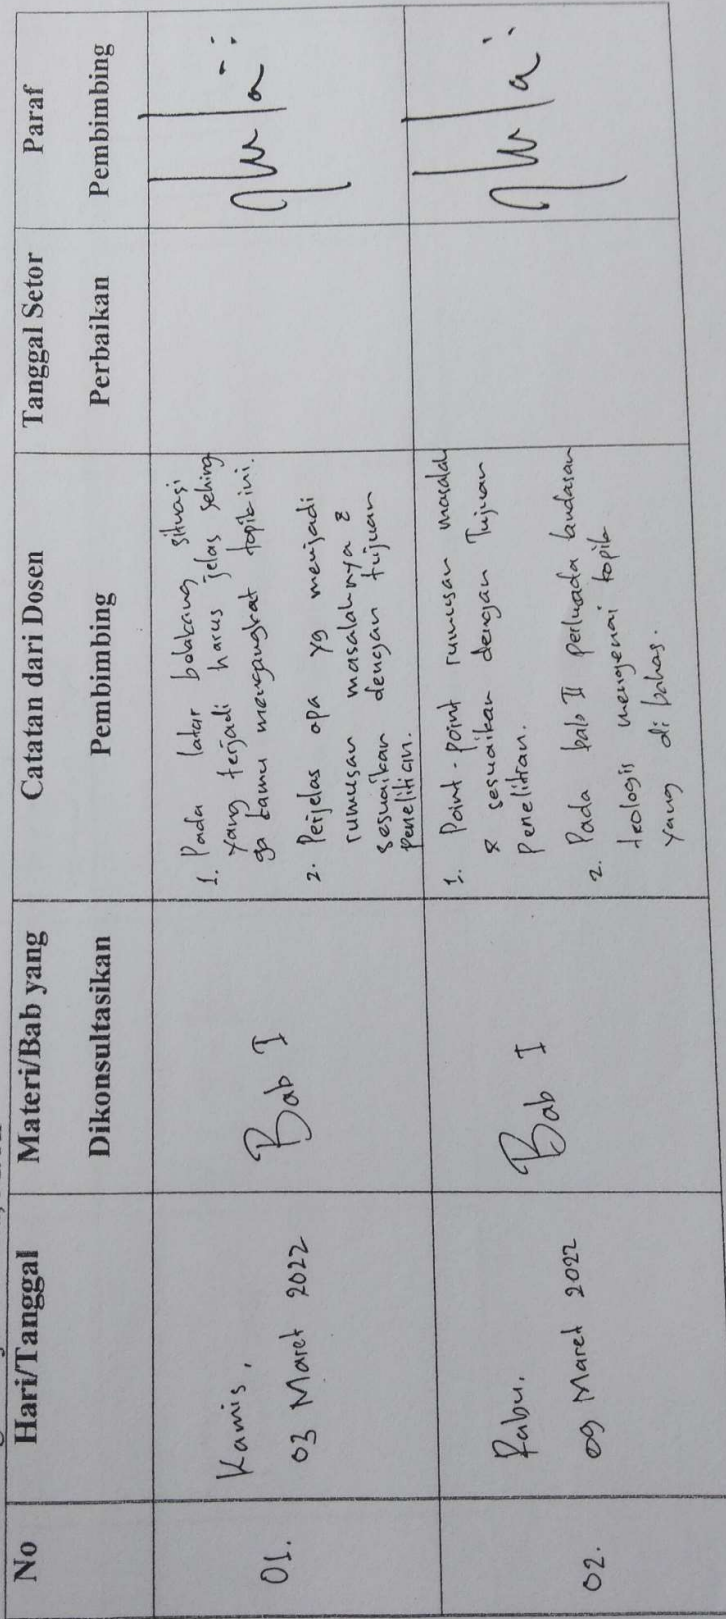 No
Hari/Tanggal
Materi/Bab yang
Dikonsultasikan
Catatan dari Dosen
Pembimbing
Tanggal Setor
Perbaikan
Paraf
Pembimbing
01.
Kamis,
03 Maret 2022
Bab I
1. Pada latar belakang situasi
yang terjadi harus jelas sehing
ga kamu mengangkat topik ini.
2. Perjelas apa yg menjadi
rumusan masalahnya &
sesuaikan dengan tujuan
penelitian.
02.
Rabu.
09 Maret 2022
Bab I
1. Point-point rumusan masalah
& sesuaikan dengan Tujuan
penelitian.
2. Pada bab II perluada landasan
teologis mengenai topik
yang di bahas.